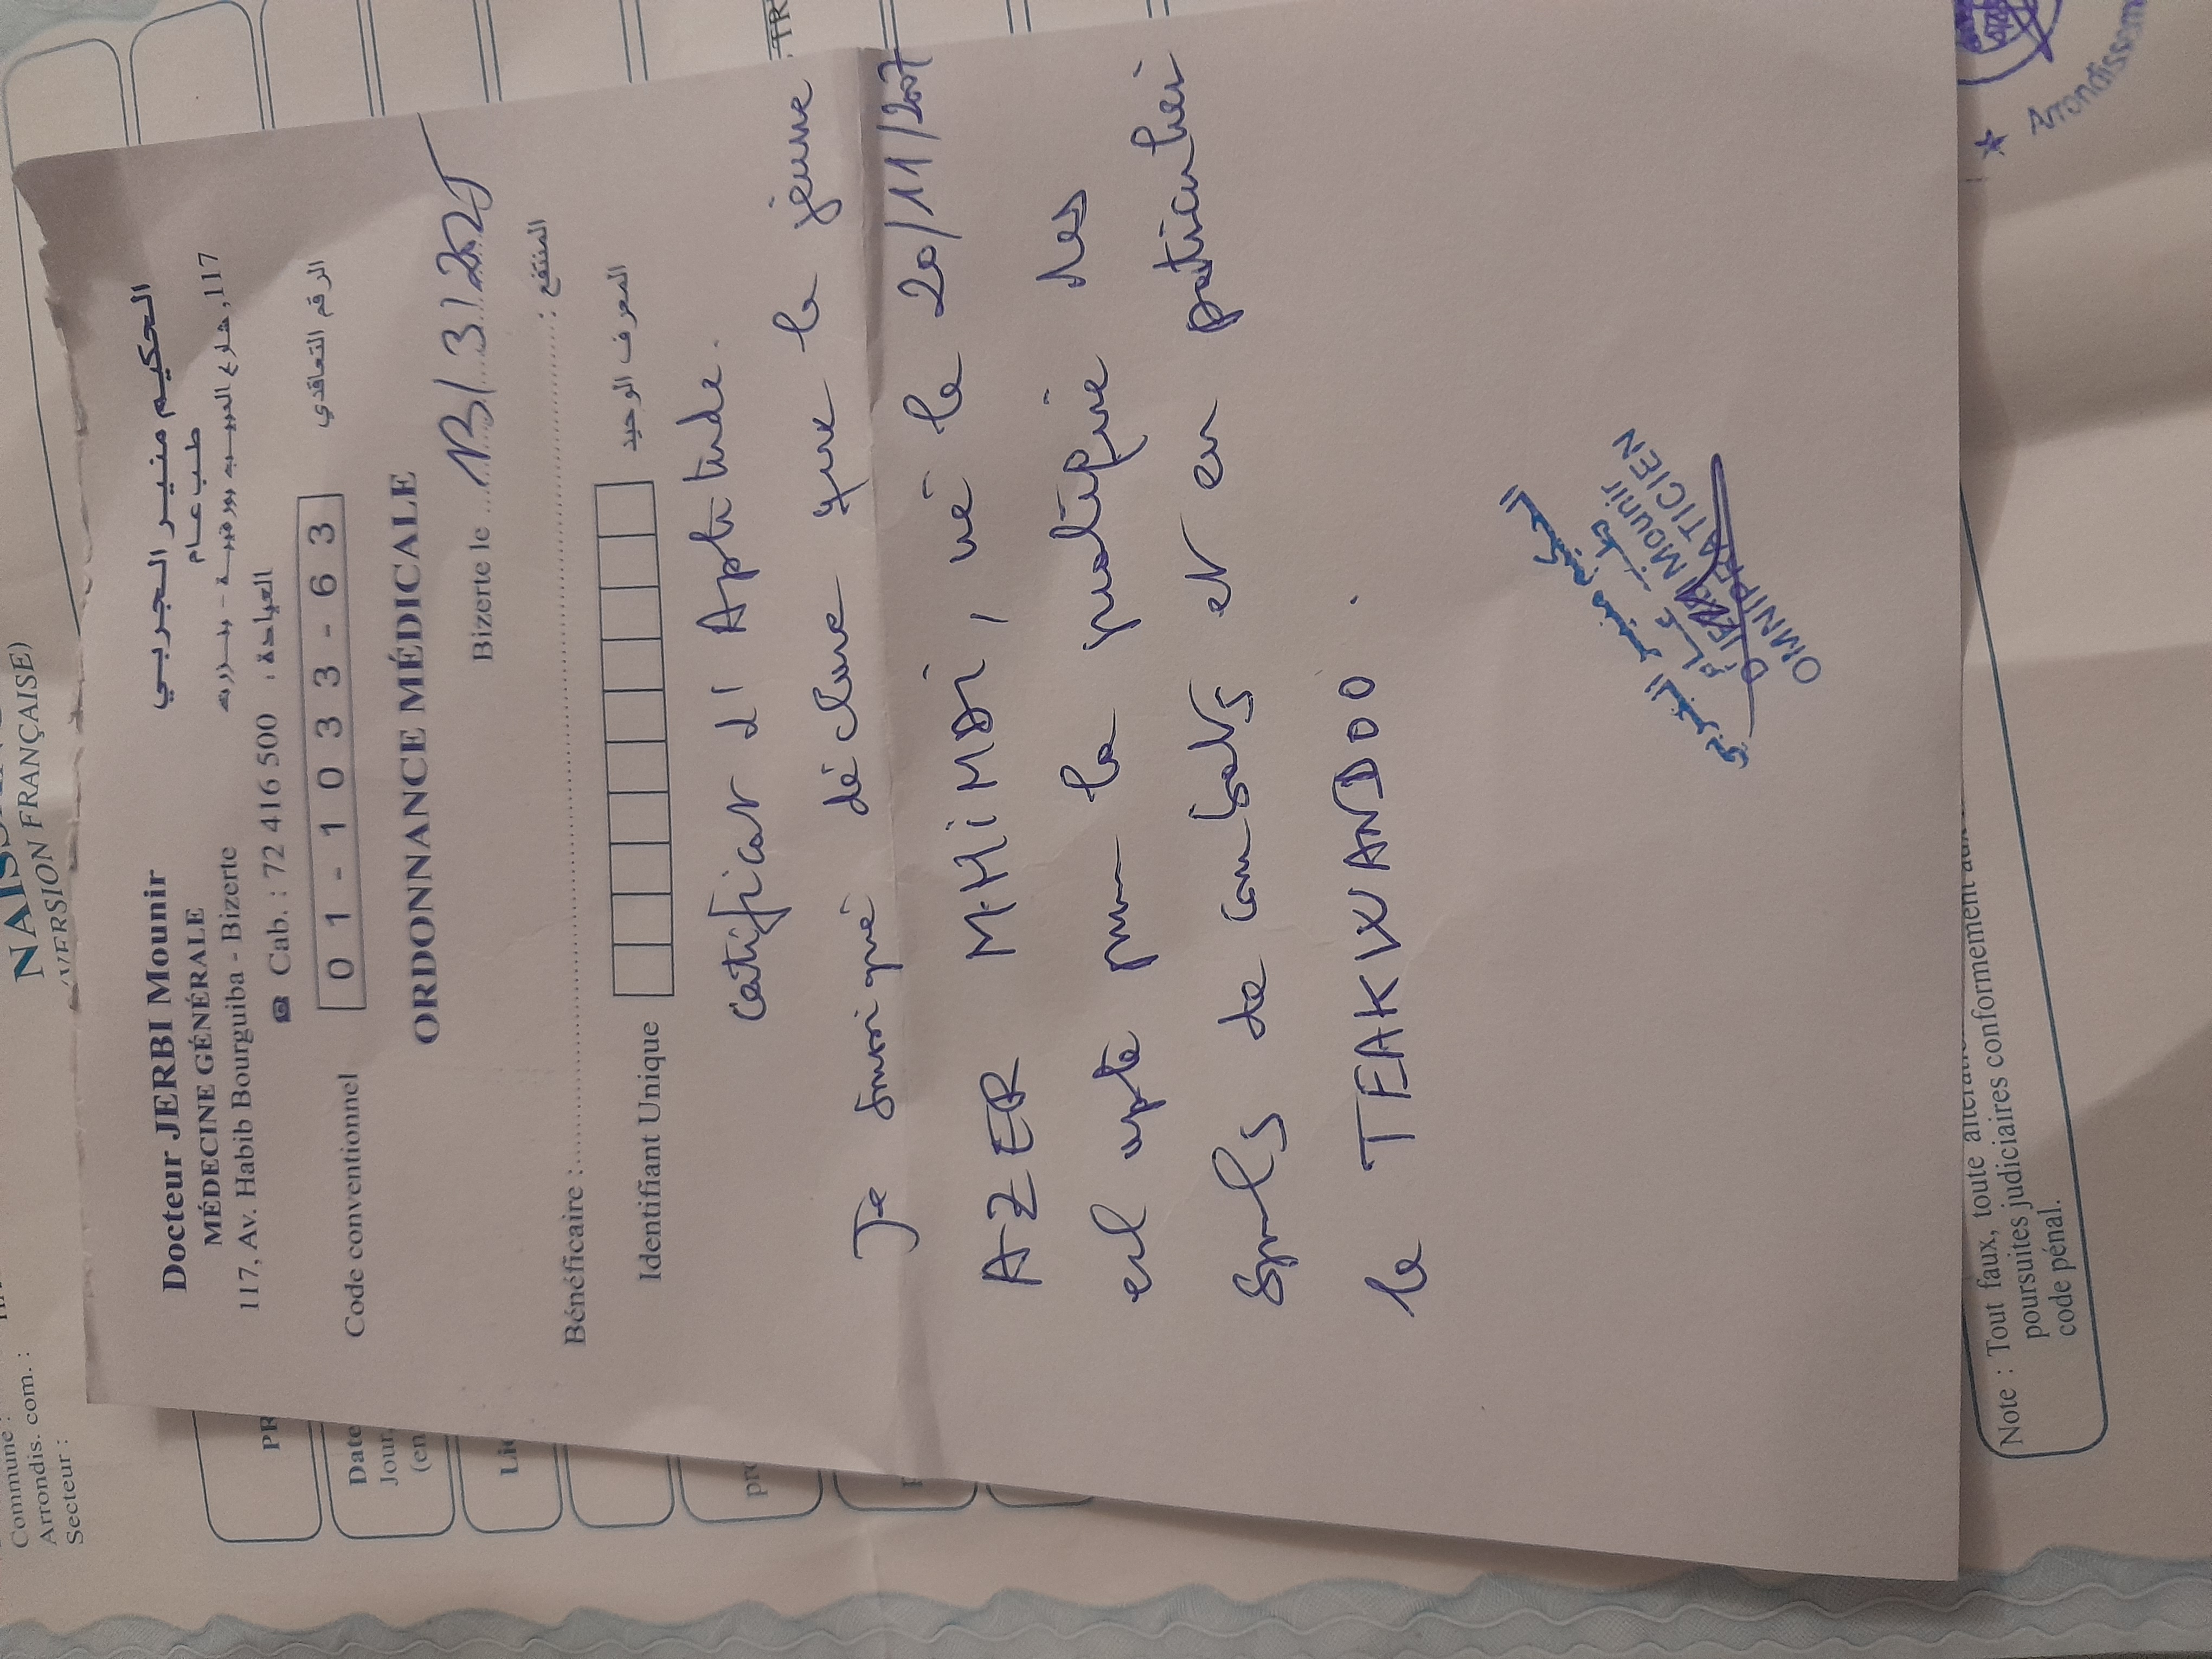 Docteur JERBI Mounir
MÉDECINE GÉNÉRALE
117, Av. Habib Bourguiba - Bizerte
☎ Cab. : 72 416 500 العيادة :
الحكيم منير الجربي
طب عام
117, شارع الحبيب بورقيبة - بنزرت
Code conventionnel 01-1033-63 الرقم التعاقدي
ORDONNANCE MÉDICALE
Bizerte le 13/3/2025
Bénéficaire : المنتفع :
Identifiant Unique المعرف الوحيد
Certificat d'Aptitude.
Je soussigné déclare que le jeune
AZER MHIMDI, né le 20/11/2007
est apte pour la pratique des
sports de combats et en particulier
le TEAKWANDOO.
الحكيم منير الجربي
طب عام
Mounir
OMNIPRATICIEN
NAISS
(VERSION FRANÇAISE)
Commune :
Arrondis. com. :
Secteur :
PR
Date
Jour,
(en
Lie
TR
Arrondissem
Note : Tout faux, toute
poursuites judiciaires conformément aux
code pénal.